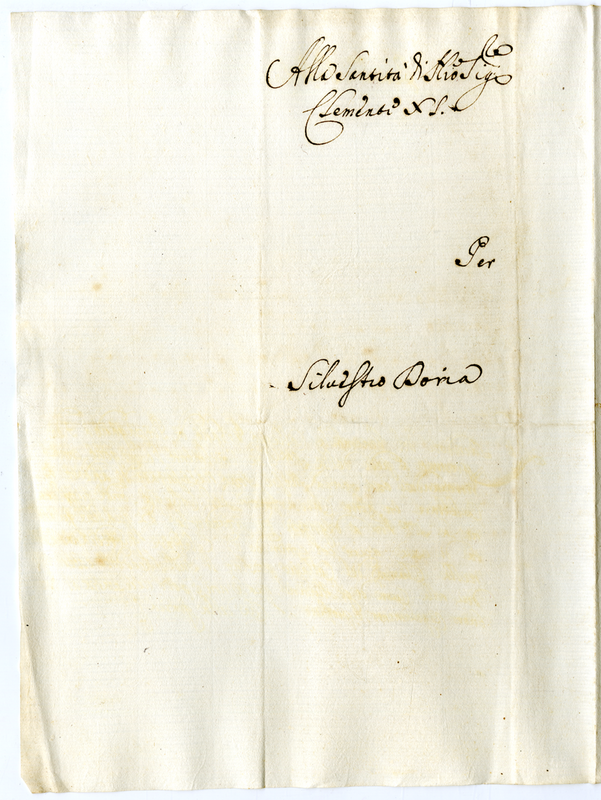 Alla Santità di Nro Sigre
Clemente XI.
Per
Silvestro Doria